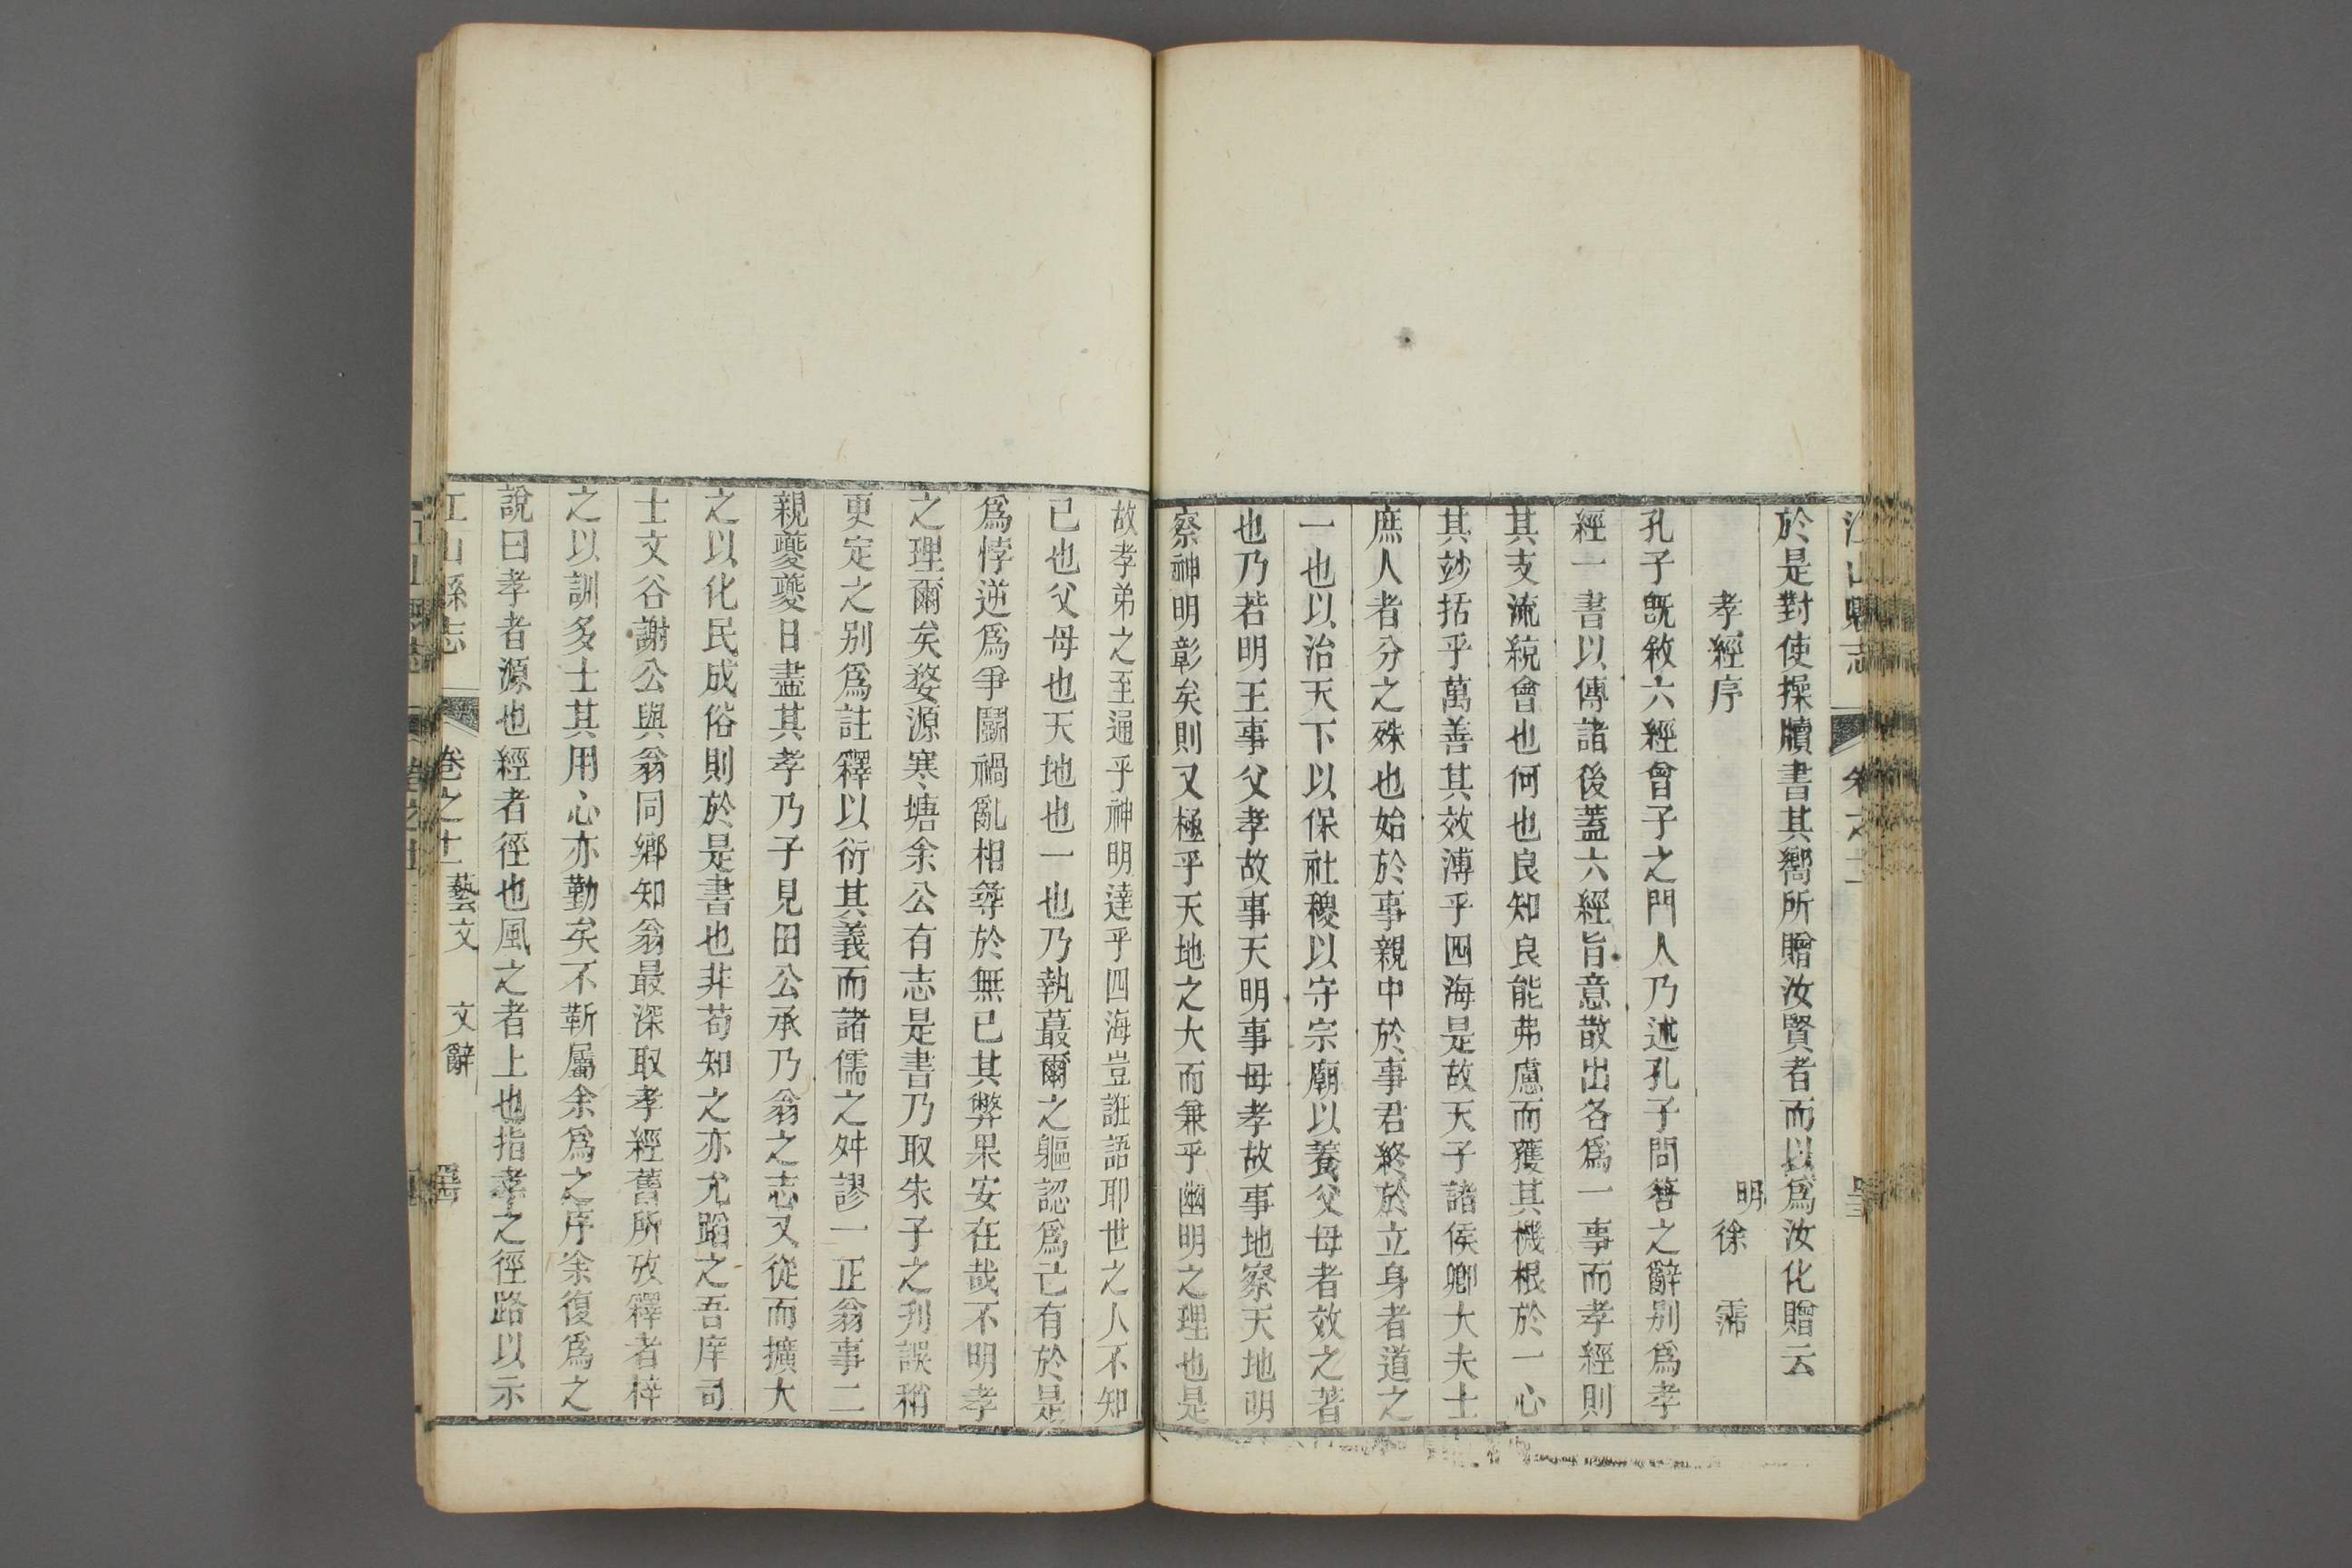 於是對使操牘書其嚮所贈汝賢者而以爲汝化贈云
孝經序
明徐霈
孔子旣敘六經曾子之門人乃述孔子問答之辭别爲孝
經一書以傳諸後蓋六經旨意散出各爲一事而孝經則
其支流綂會也何也良知良能弗慮而獲其機根於一心
其妙括乎萬善其效溥乎四海是故天子諸侯卿大夫士
庶人者分之殊也始於事親中於事君終於立身者道之
一也以治天下以保社稷以守宗廟以養父母者效之著
也乃若明王事父孝故事天明事母孝故事地察天地明
察神明彰矣則又極乎天地之大而兼乎幽明之理也是
故孝弟之至通乎神明達乎四海豈誑語耶世之人不知
已也父母也天地也一也乃執蕞爾之軀認爲己有於是
爲悖逆爲爭鬭禍亂相尋於無已其弊果安在哉不明孝
之理爾矣婺源寒塘余公有志是書乃取朱子之刋誤稍
更定之别爲註釋以衍其義而諸儒之舛謬一正翁事二
親夔夔日盡其孝乃子見田公承乃翁之志又從而擴大
之以化民成俗則於是書也非苟知之亦允蹈之吾庠司
士文谷謝公與翁同鄉知翁最深取孝經舊所攷釋者梓
之以訓多士其用心亦勤矣不靳屬余爲之序余復爲之
說曰孝者源也經者徑也風之者上也指孝之徑路以示
江山縣志
卷之十一
藝文
文辭